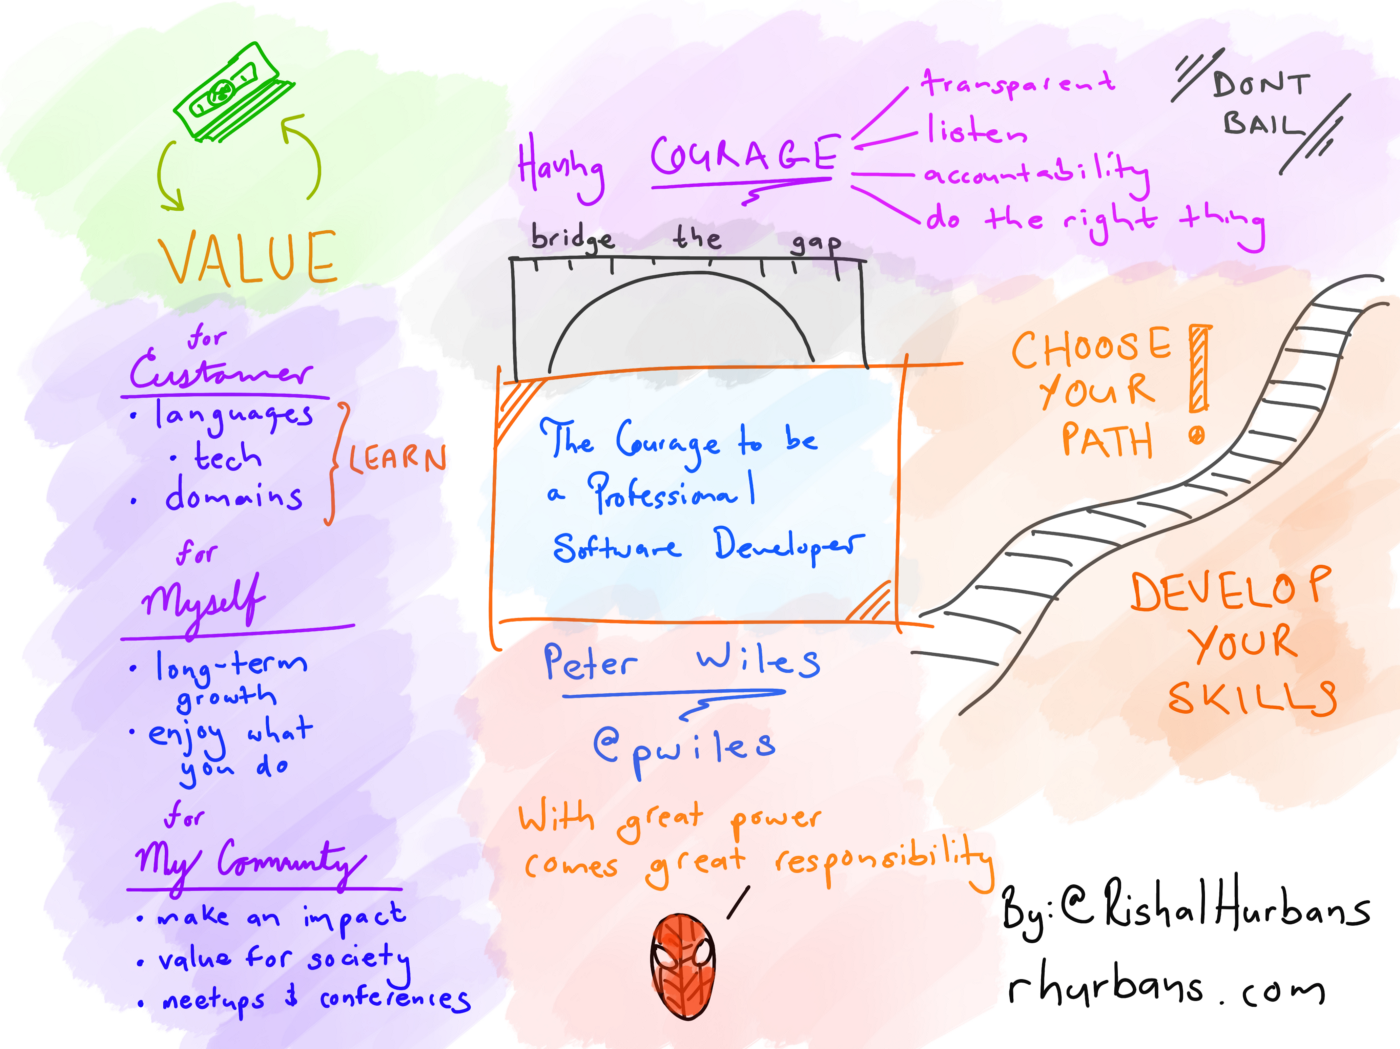 VALUE
for
Customer
• languages
• tech
• domains
LEARN
for
Myself
• long-term
growth
• enjoy what
you do
for
My Community
• make an impact
• value for society
• meetups & conferences
Having COURAGE
transparent
listen
accountability
do the right thing
DONT
BAIL
bridge the gap
The Courage to be
a Professional
Software Developer
Peter Wiles
@pwiles
With great power
comes great responsibility
CHOOSE
YOUR
PATH !
DEVELOP
YOUR
SKILLS
By: @RishalHurbans
rhurbans.com